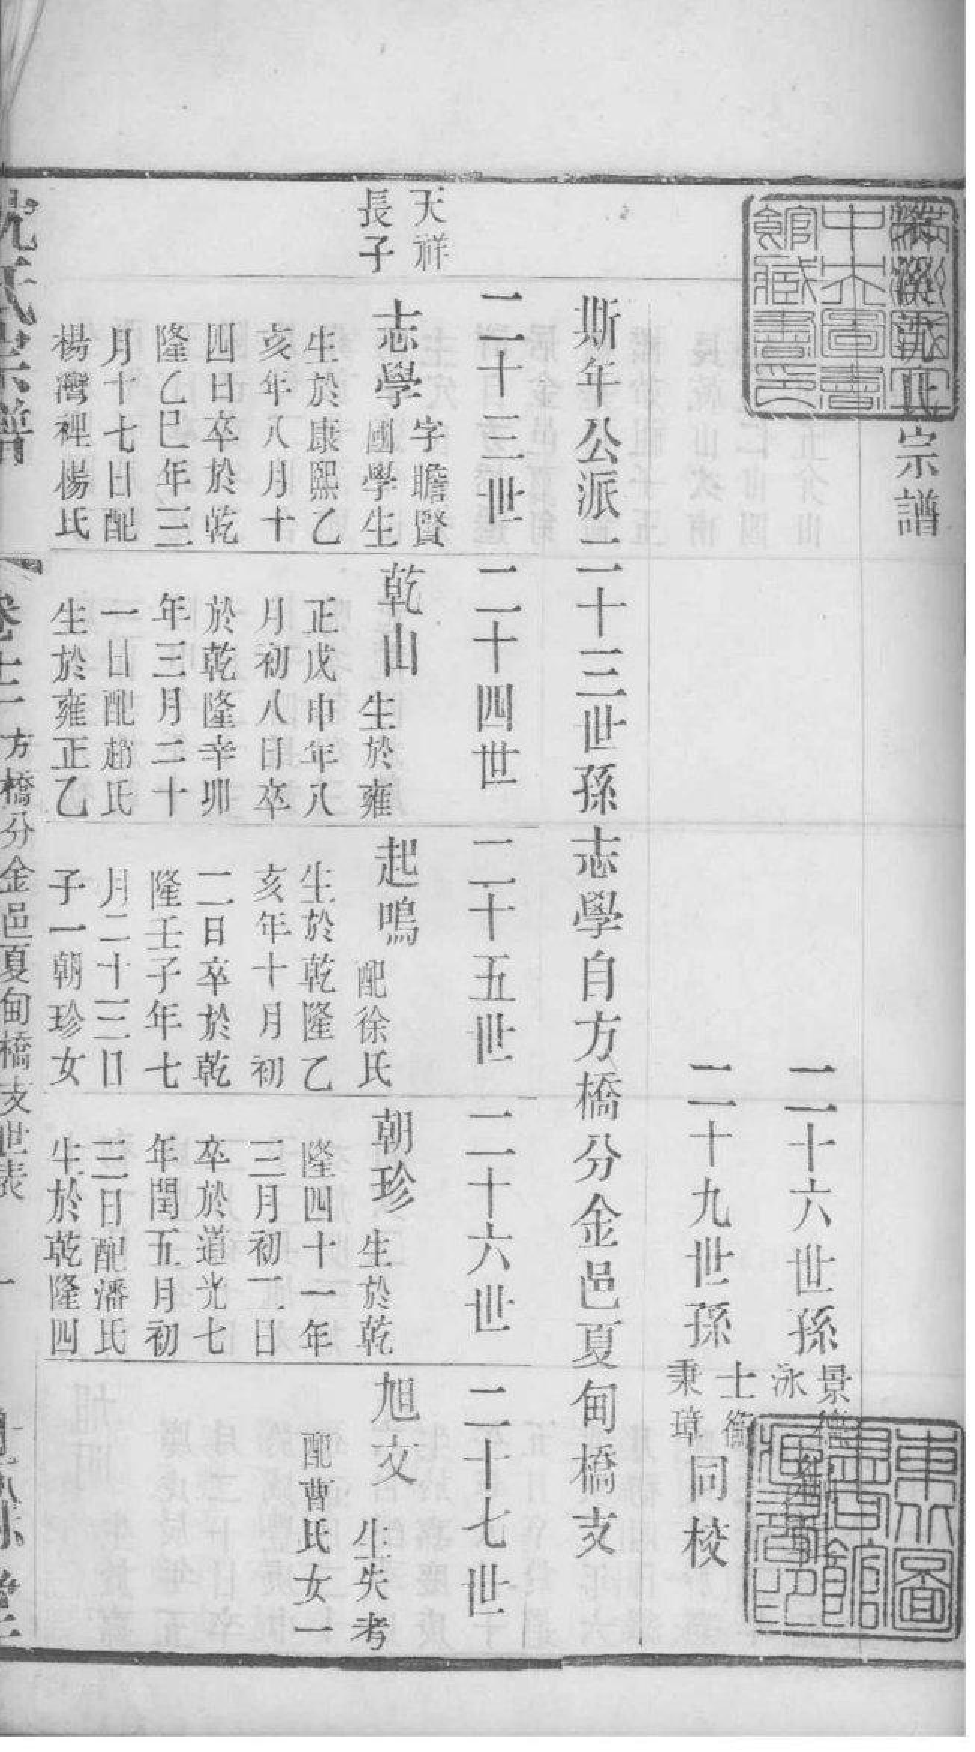 沈氏宗譜
二十六世孫
景
泳
二十九世孫
士
秉璋
同校
斯年公派二十三世孫志學自方橋分金邑夏甸橋支
二十三世
二十四世
二十五世
二十六世
二十七世
天祥
長子
志學
字瞻賢
國學生
生於康熙乙
亥年八月十
四日卒於乾
隆乙巳年三
月十七日配
楊灣裡楊氏
乾山
生於雍
正戊申年八
月初八日卒
於乾隆辛卯
年三月二十
一日配趙氏
生於雍正乙
起鳴
配徐氏
生於乾隆乙
亥年十月初
二日卒於乾
隆壬子年七
月二十三日
子一朝珍女
朝珍
生於乾
隆四十一年
三月初二日
卒於道光七
年閏五月初
三日配潘氏
生於乾隆四
旭文
生失考
配曹氏女一
沈氏宗譜
卷十二
方橋分金邑夏甸橋支世表
一